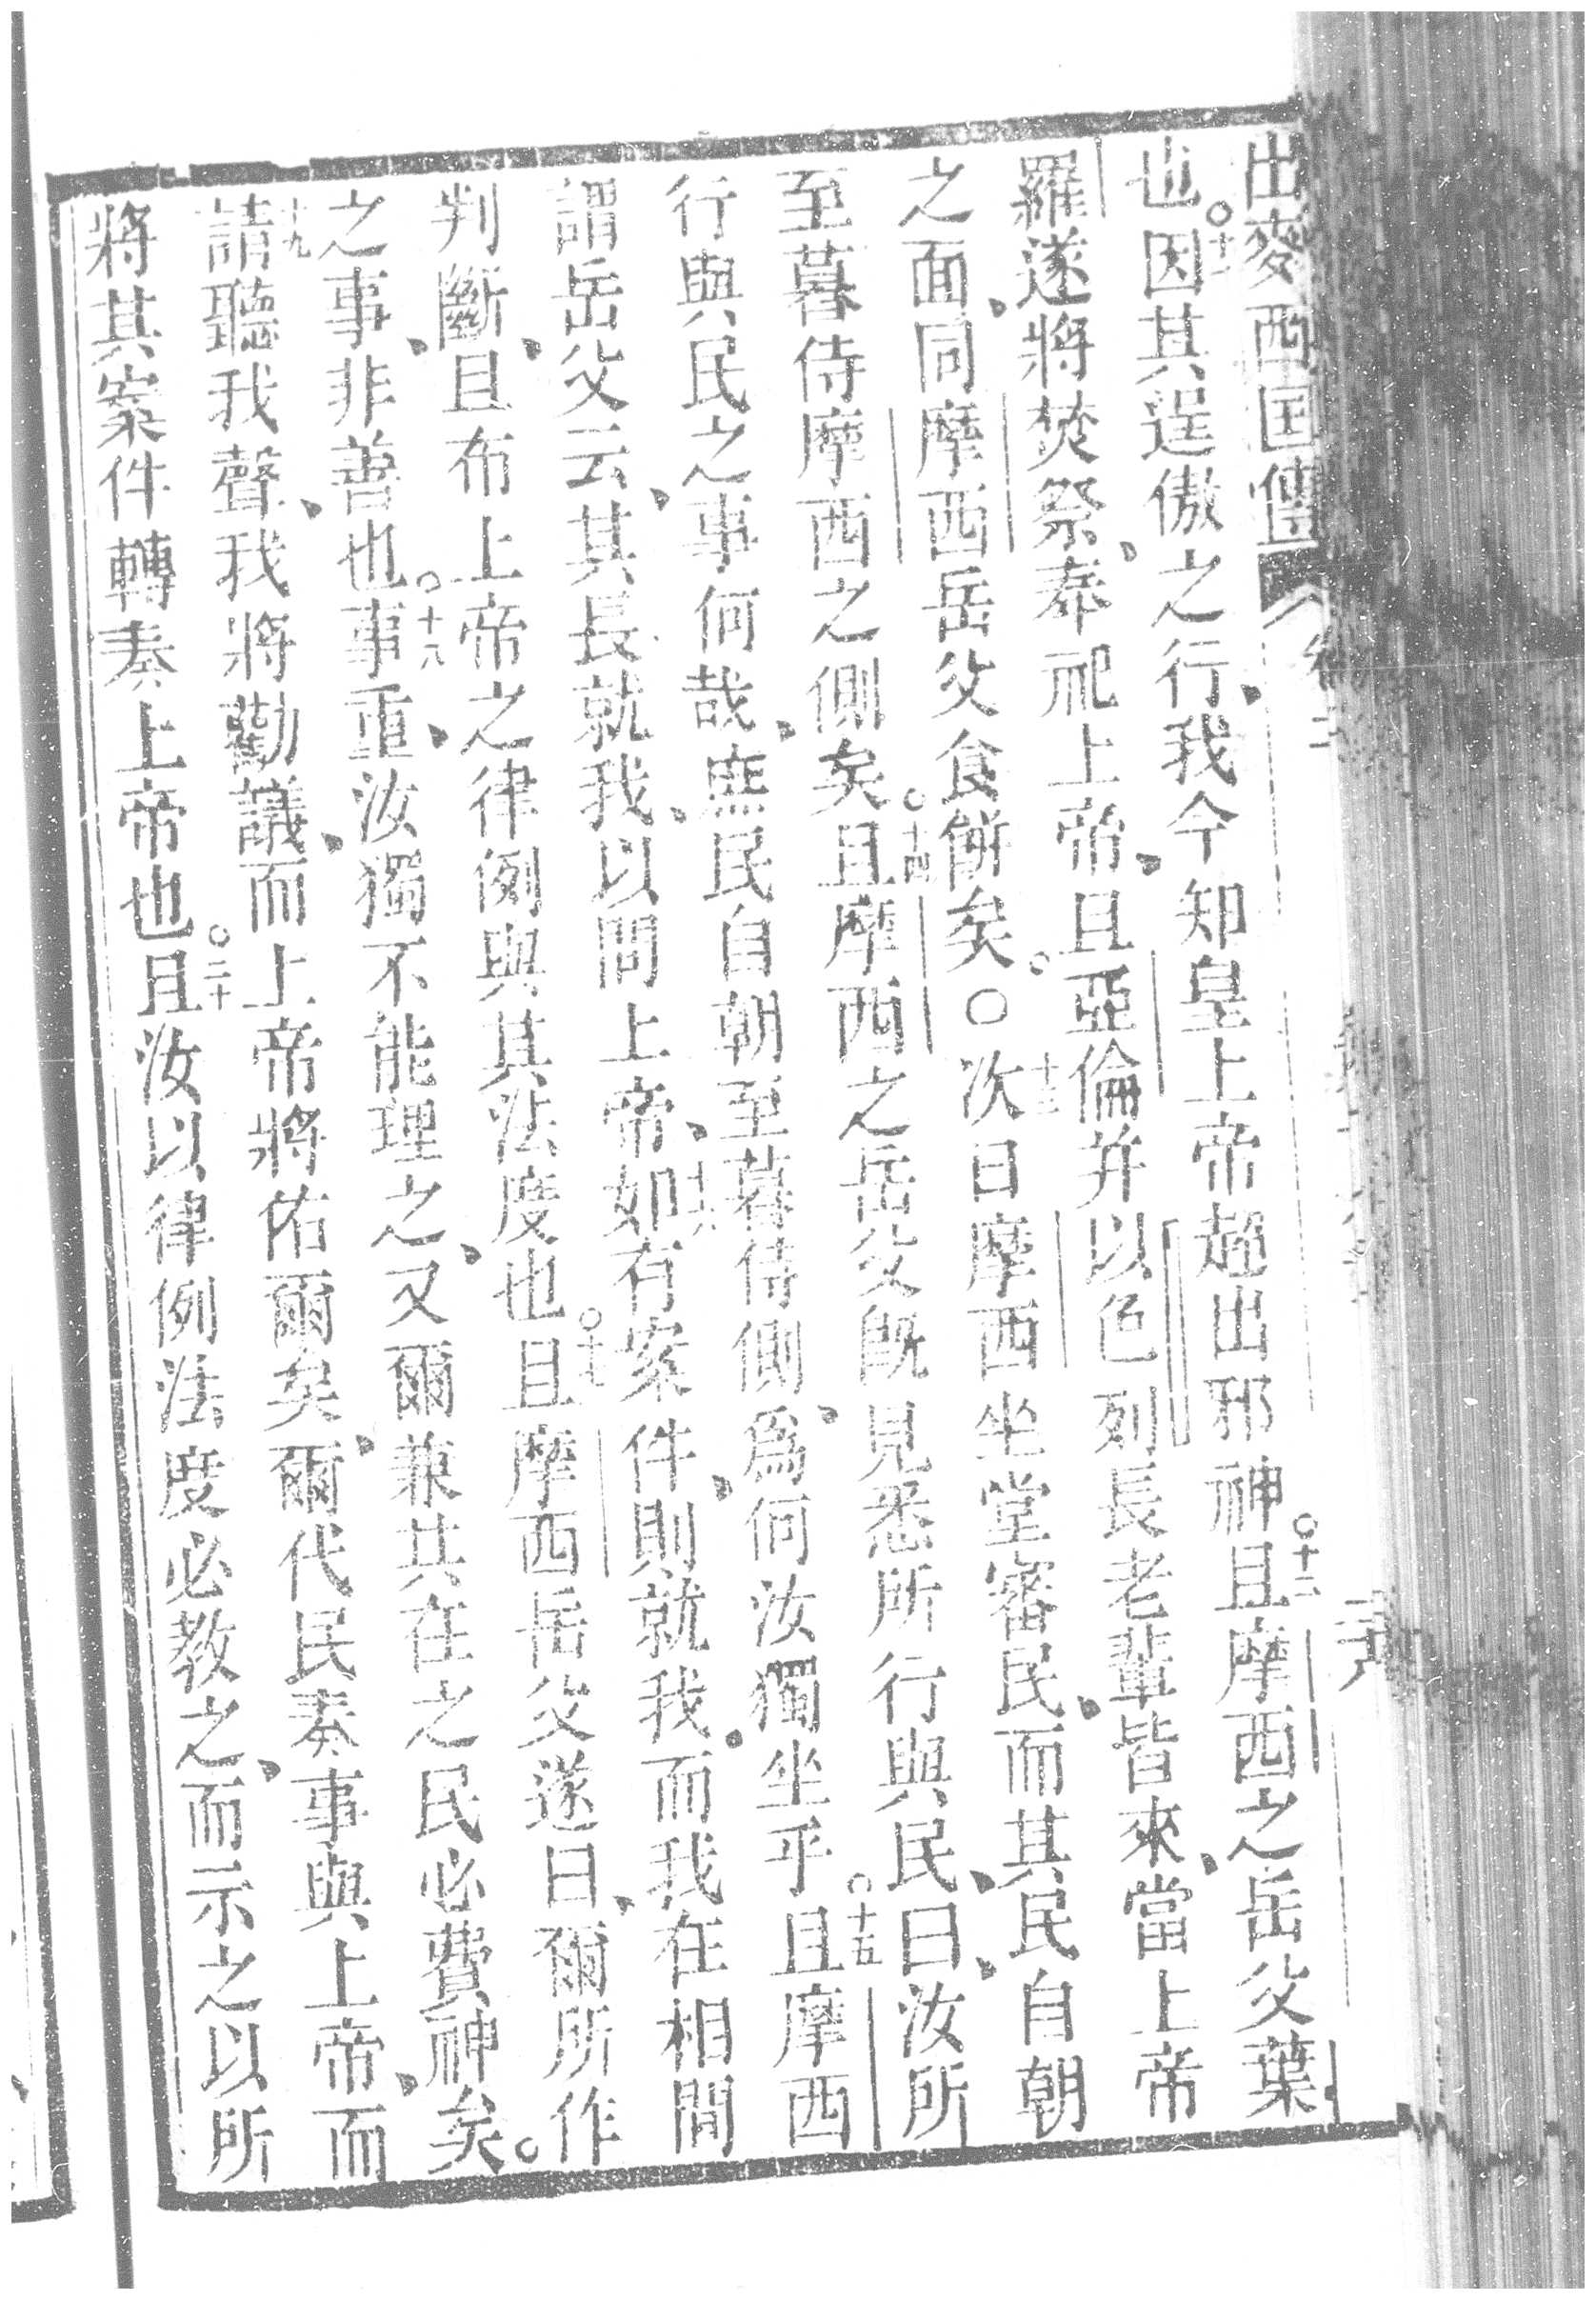 出麥西國傳
也○十一因其逞傲之行、我今知皇上帝超出邪神○十二且摩西之岳父葉
羅遂將焚祭、奉祀上帝、且亞倫并以色列長老輩皆來、當上帝
之面、同摩西岳父食餅矣。○十三次日摩西坐堂審民、而其民自朝
至暮侍摩西之側矣○十四且摩西之岳父既見悉所行與民、曰、汝所
行與民之事何哉、庶民自朝至暮侍側、爲何汝獨坐乎○十五且摩西
謂岳父云、其長就我、以問上帝、十六如有案件、則就我。而我在相間
判斷、且布上帝之律例與其法度也○十七且摩西岳父遂曰、爾所作
之事、非善也○十八事重、汝獨不能理之、又爾兼共在之民必費神矣。
十九請聽我聲、我將勸議、而上帝將佑爾矣、爾代民奏事與上帝、而
將其案件轉奏上帝也○二十且汝以律例法度必教之、而示之以所